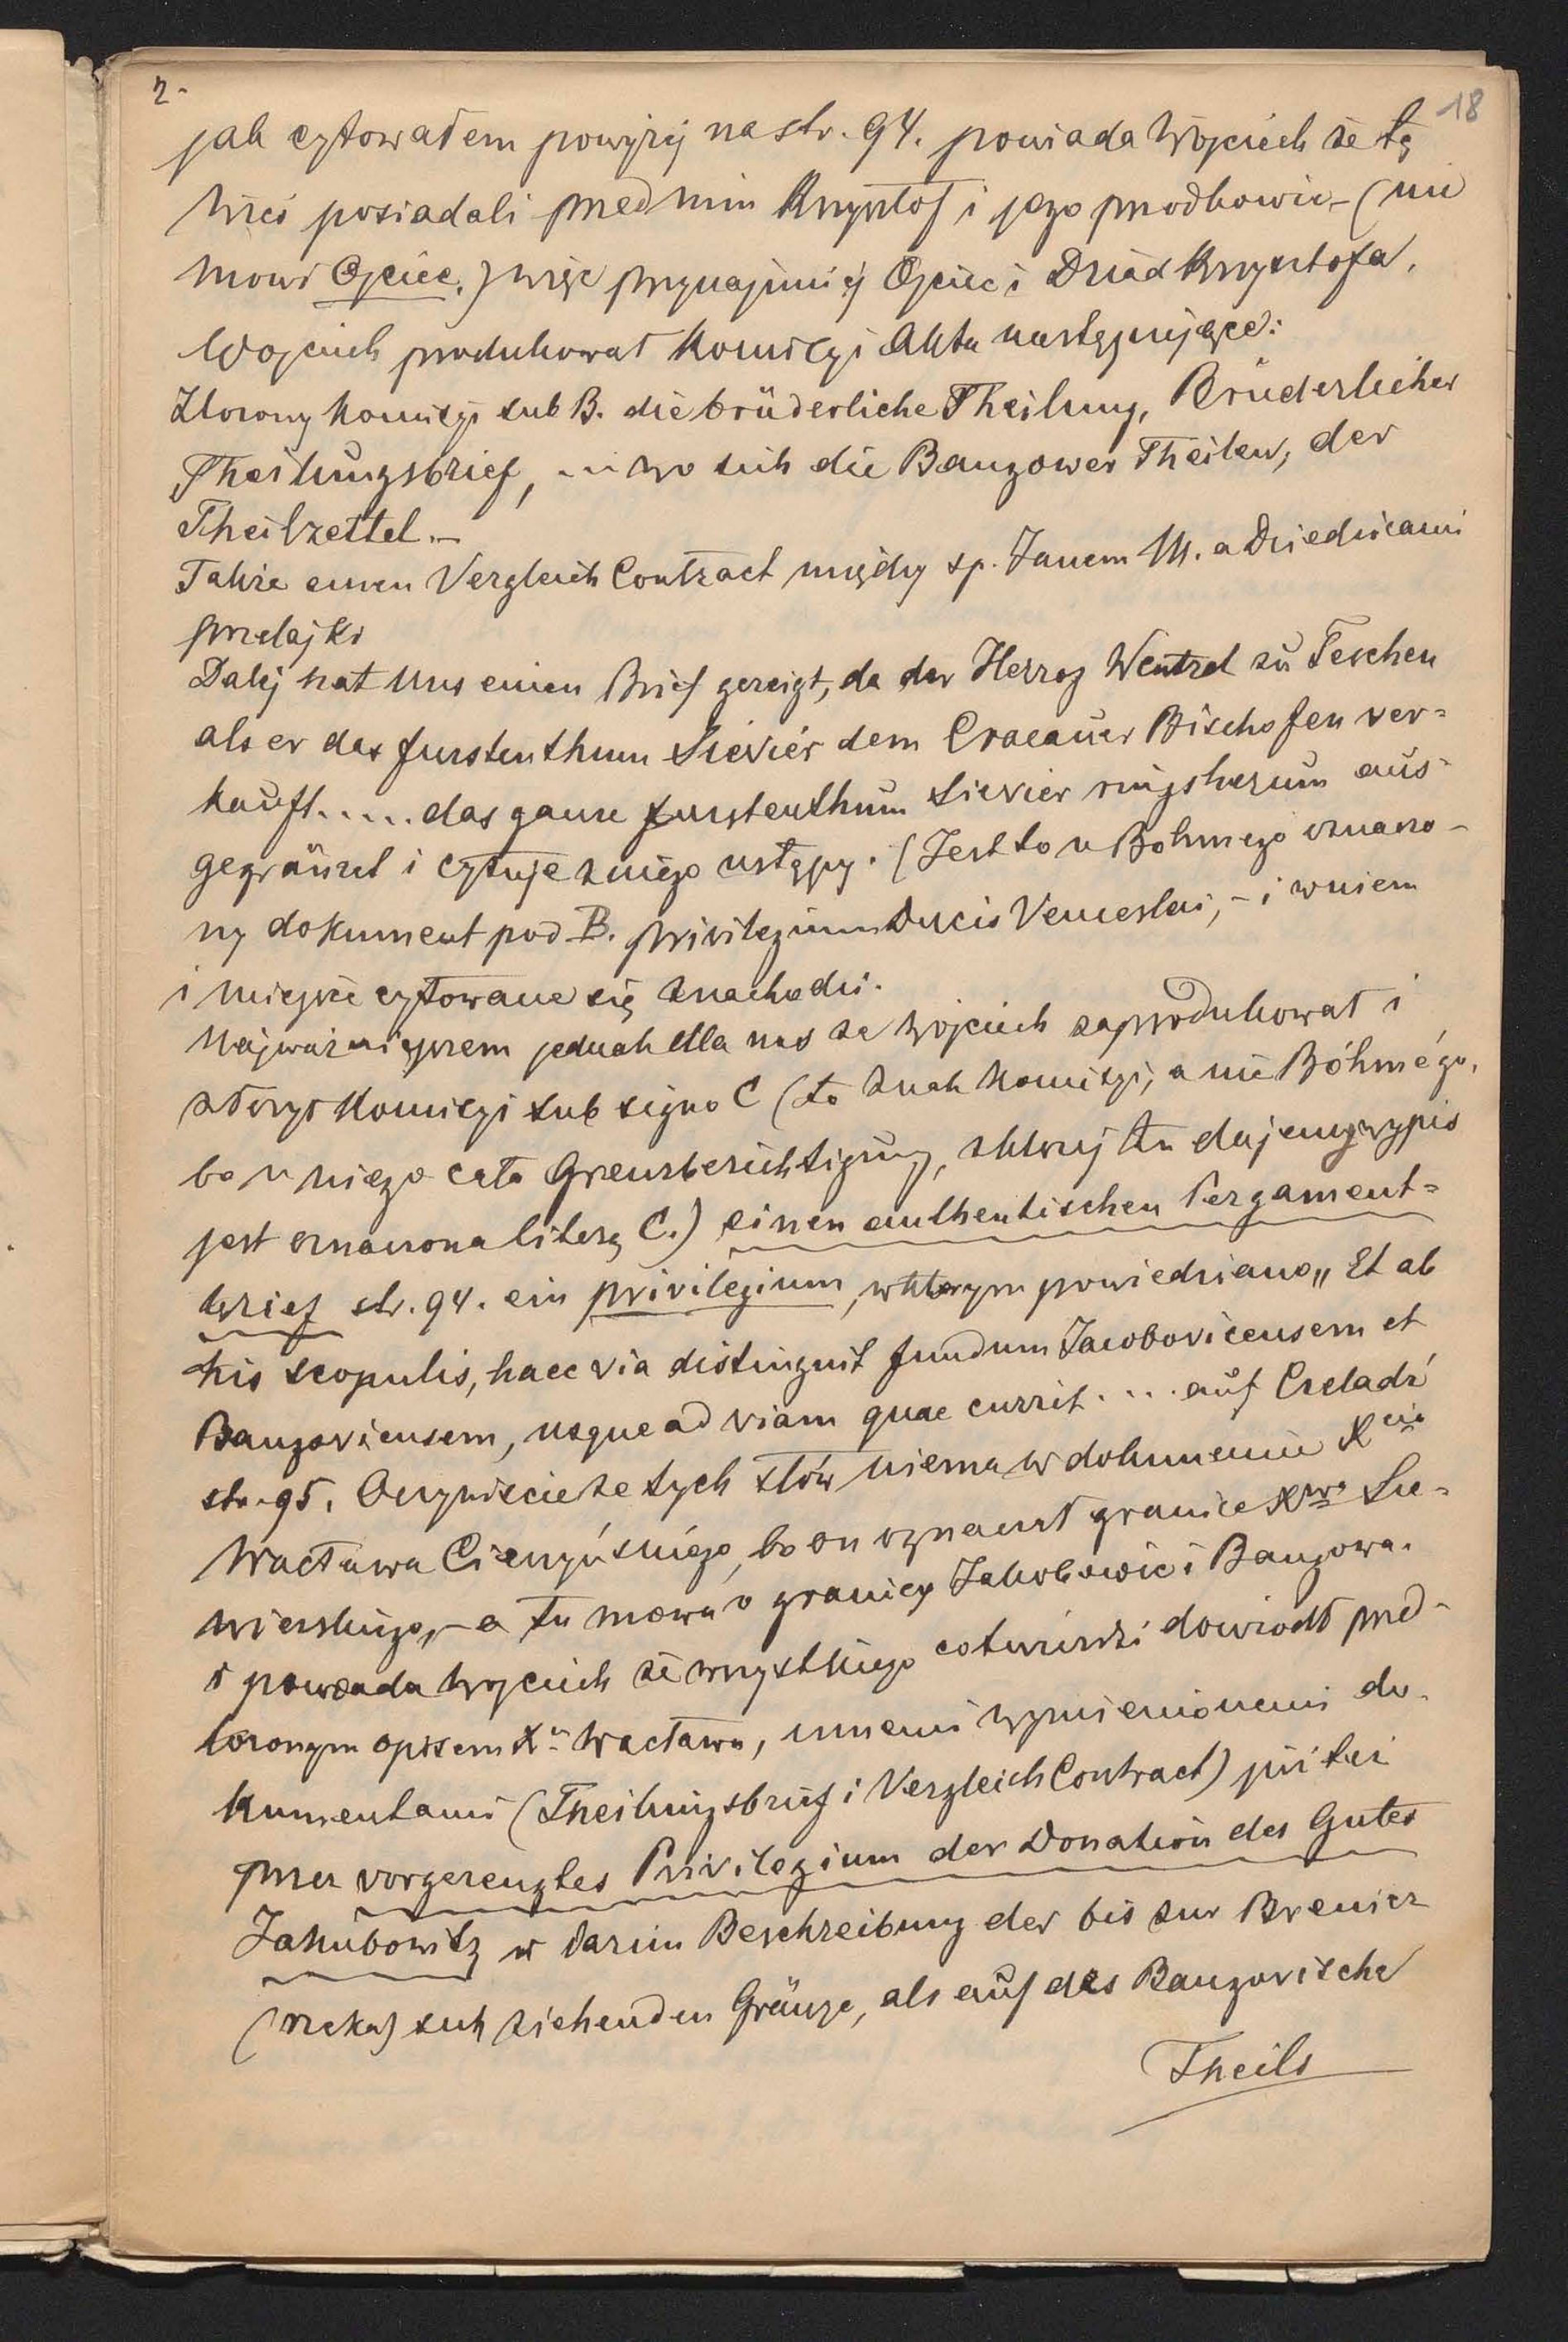 2.
18
jak cytowałem powyżej na str. 94. powiada Wojciech że tę
wieś posiadali przed nim Krzysztof i jego przodkowie – (nie
mowi Ojciec.) więc przynajmniej Ojciec i Dziad Krzysztofa.
Wojciech produkował Komisyi Akta następujące:
Złożony Komisyi sub B. die brüderliche Theilung, Brüderlicher
Theilungsbrief, ... wo sich die Bangower Theilen, der
Theilzettel. –
Także einen Vergleich Contract między sp. Janem M. a Dziedzicami
Przelajki
Dalej hat uns einen Brief gezeigt, da der Herzog Wentzel zu Teschen
als er das furstenthum Sievier dem Cracauer Bischofen ver=
kauft ..... das ganze furstenthum Sievier ringsherum aus=
gegränzet i cytuje z niego ustępy. (Jest to u Bohmego oznaczo–
ny dokument pod B. privilegium Ducis Venceslai, – i w niem
i miejsce cytowane się znachodzi.
Najważniejszem jednak dla nas że Wojciech zaprodukował i
złożył Komisyi sub signo C (to znak Komisyi, a nie Böhmégo,
bo u niego cała Grenzberichtigung, z której tu dajemy wypis
jest oznaczona literą C.) einen authentischen Pergament=
brief str. 94. ein privilegium, w którym powiedziano „ Et ab
his scopulis, haec via distinguit fundum Jacobovicensem et
Bangoviensem, usque ad viam quae currit .... auf Czeladź
str. 95. Oczywiście że tych słów niema w dokumencie Xcia
Wacława Cieszyńskiego, bo on oznaczył granice Xwa Sie=
wierskiego, – a tu mowa o granicy Jakobowic i Bangowa.
i powiada Wojciech że wszystkiego co twierdzi dowiodł przed–
łożonym opisem Xa Wacława, innemi wymienionemi do–
kumentami (Theilungsbrief i Vergleich Contract) jüster
przez vorgezeugtes Privilegium der Donation des Gutes
Jakubowitz w darin Beschreibung der bis zur Brenicz
(rzeka) sich ziehenden Gränze, als auf das Bangovische
Theils